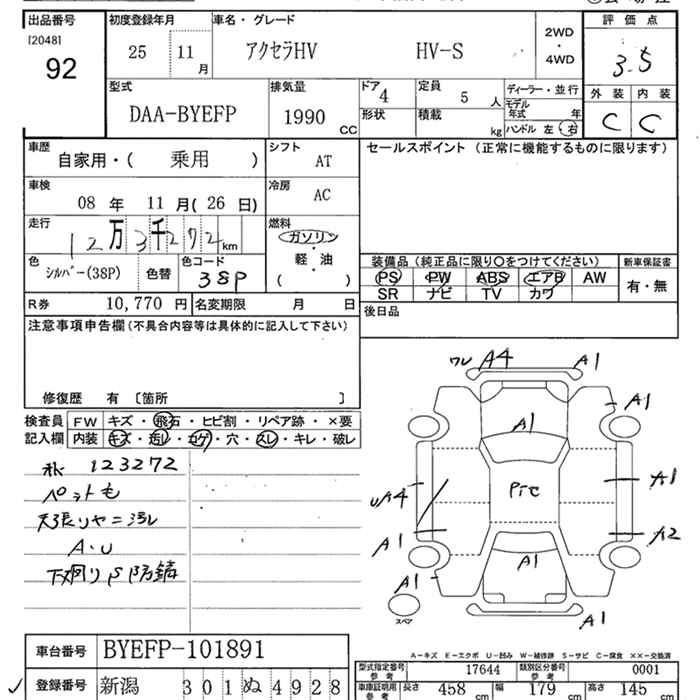 出品番号 初度登録年月 車名・グレード 評価点
[2048]
92
25 11月 アクセラHV HV-S 2WD・4WD 3.5
型式 排気量 ドア 定員 ディーラー・並行 外装 内装
DAA-BYEFP 1990cc 4 5人 モデル年式 年 C C
形状 積載 kg ハンドル 左 右
車歴 シフト セールスポイント (正常に機能するものに限ります)
自家用・( 乗用 ) AT
車検 冷房
08年 11月(26日) AC
走行 燃料
12万3千272km ガソリン
軽・油
( )
色 色替 色コード
シルバー(38P) 38P
装備品(純正品に限り○をつけてください) 新車保証書
PS PW ABS エアB AW 有・無
SR ナビ TV カワ
R券 10,770円 名変期限 月 日 後日品
注意事項申告欄(不具合内容等は具体的に記入して下さい)
修復歴 有 〔箇所 〕
検査員 FW キズ・飛石・ヒビ割・リペア跡・×要
記入欄 内装 キズ・汚レ・コゲ・穴・スレ・キレ・破レ
123272
ペットも
天張リヤニ汚レ
A・U
下廻りS防錆
ワレ A4 A1
A1 A1
Pic
UA4 A1
A1 A2
A1 A1
A1
スペア
A-キズ E-エクボ U-凹み W-補修跡 S-サビ C-腐食 XX-交換済
車台番号 BYEFP-101891
型式指定番号 参考 17644 類別区分番号 参考 0001
登録番号 新潟 301ぬ4928
車庫証明用 参考 長さ 458cm 幅 179cm 高さ 145cm